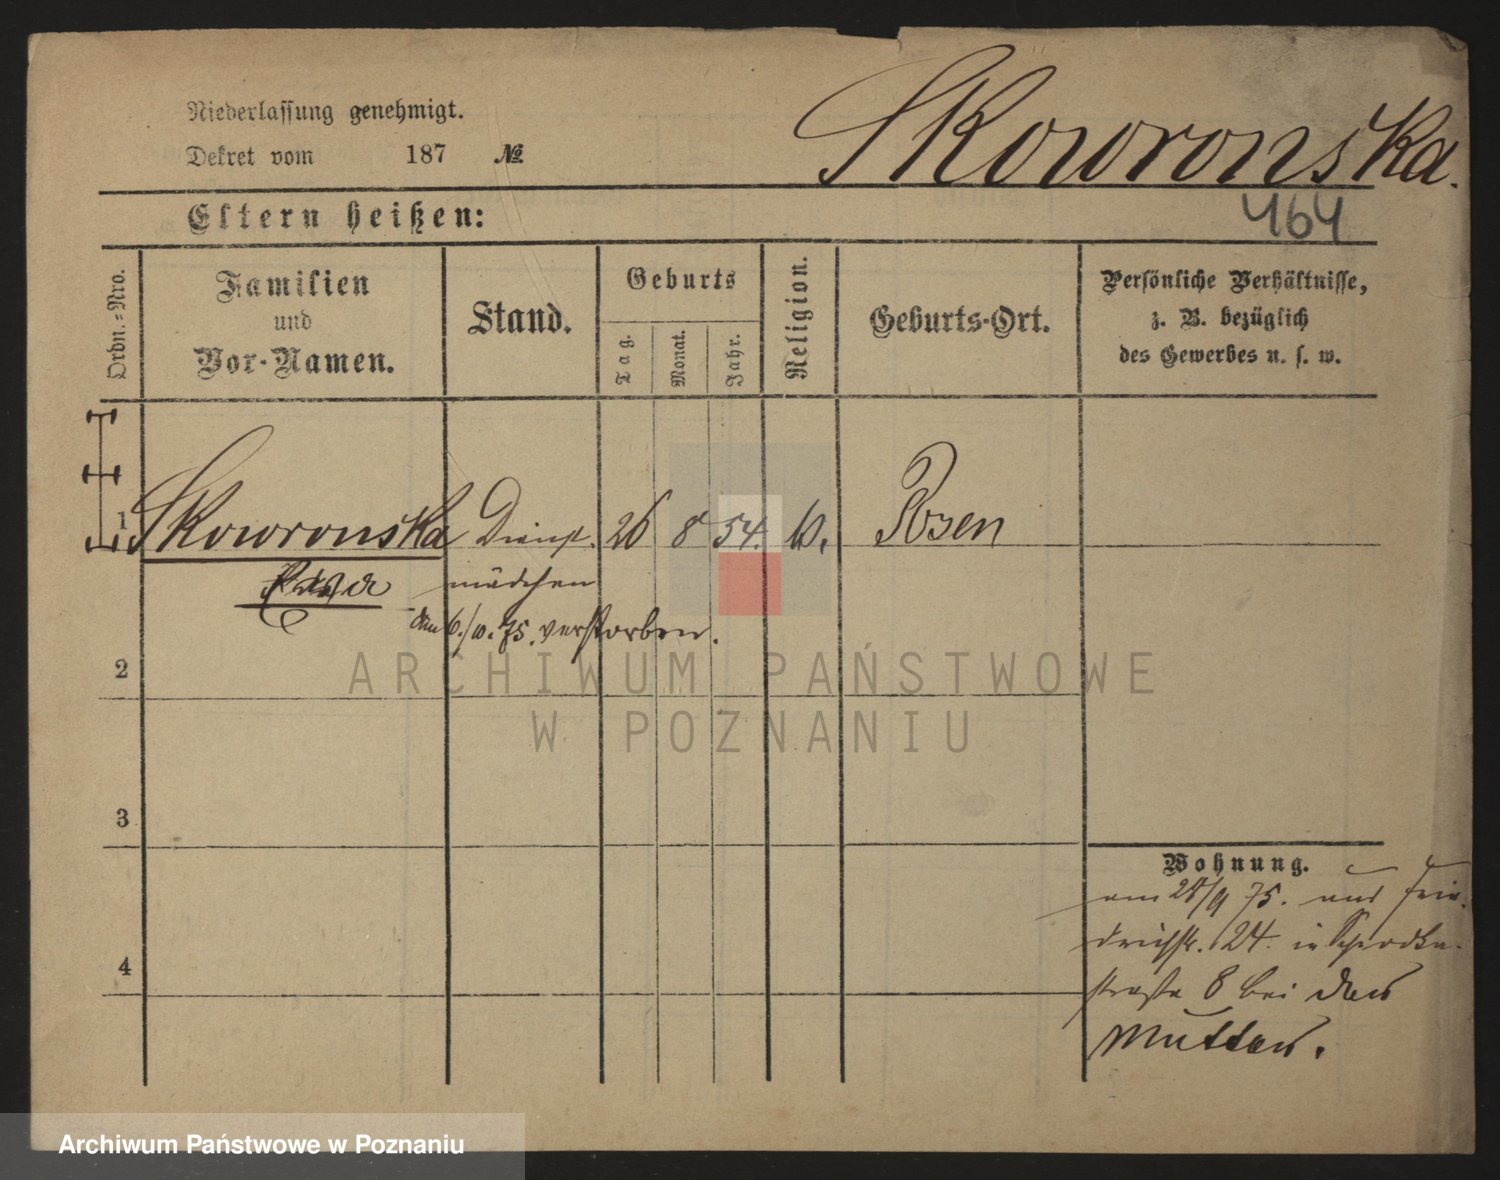 Niederlassung genehmigt.
Dekret vom 187 №
Skowronska.
464
Eltern heißen:
Ordn.=Nro.
Familien
und
Vor-Namen.
Stand.
Geburts
Tag.
Monat.
Jahr.
Religion.
Geburts-Ort.
Persönliche Verhältnisse,
z. B. bezüglich
des Gewerbes u. s. w.
1 Skowronska Dienst. 26 8 54. Posen
mädchen
den 6./10. 75. verstorben.
2
3
4
Wohnung.
am 28/9 75. aus Frie-
drichstr. 24. in
straße 8 bei der
Mutter.
ARCHIWUM PAŃSTWOWE
W POZNANIU
Archiwum Państwowe w Poznaniu